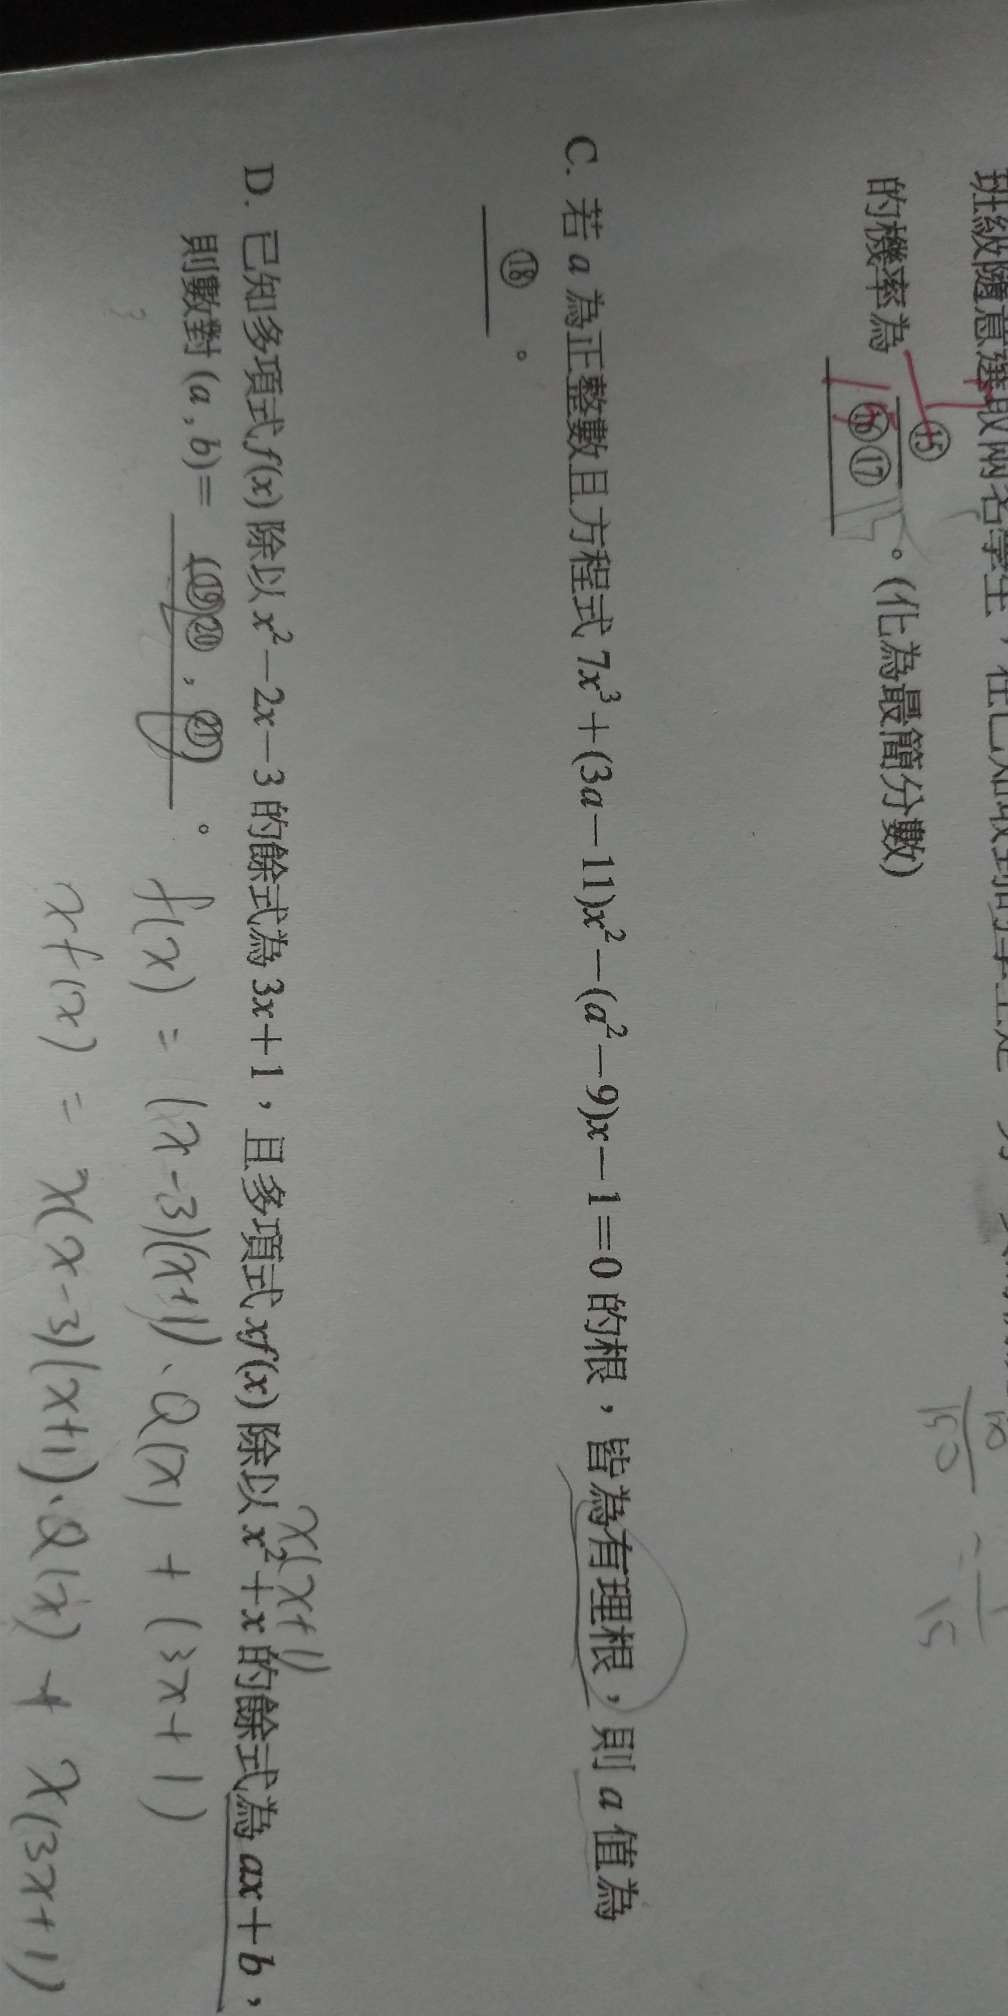 班級隨意選取兩名學生，在已知
的機率為 ⑮/⑯⑰ 。(化為最簡分數)
10/150 = 1/15
C. 若 a 為正整數且方程式 7x³+(3a−11)x²−(a²−9)x−1=0 的根，皆為有理根，則 a 值為
⑱ 。
x(x+1)
D. 已知多項式 f(x) 除以 x²−2x−3 的餘式為 3x+1，且多項式 xf(x) 除以 x²+x 的餘式為 ax+b，
則數對 (a, b)= (⑲⑳, ㉑) 。
f(x) = (x-3)(x+1)·Q(x) + (3x+1)
xf(x) = x(x-3)(x+1)·Q(x) + x(3x+1)